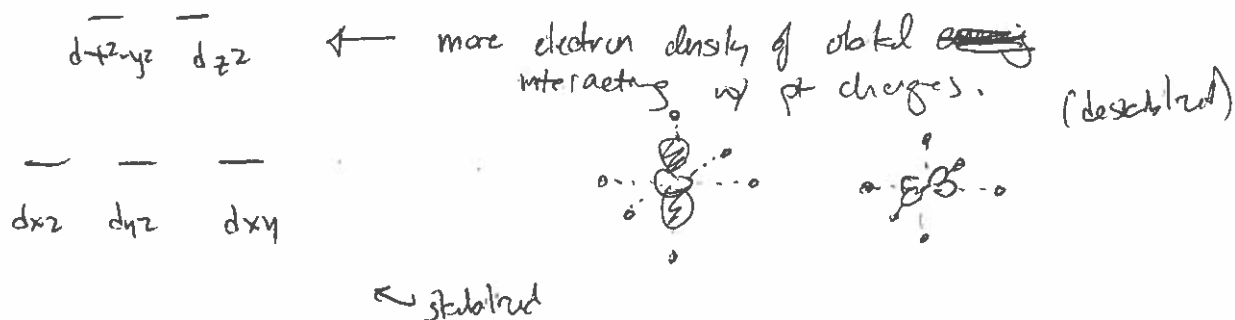 dx²-y² dz² ← more electron density of orbital
interacting w/ pt charges.
(destabilized)
dxz dyz dxy
↖ stabilized